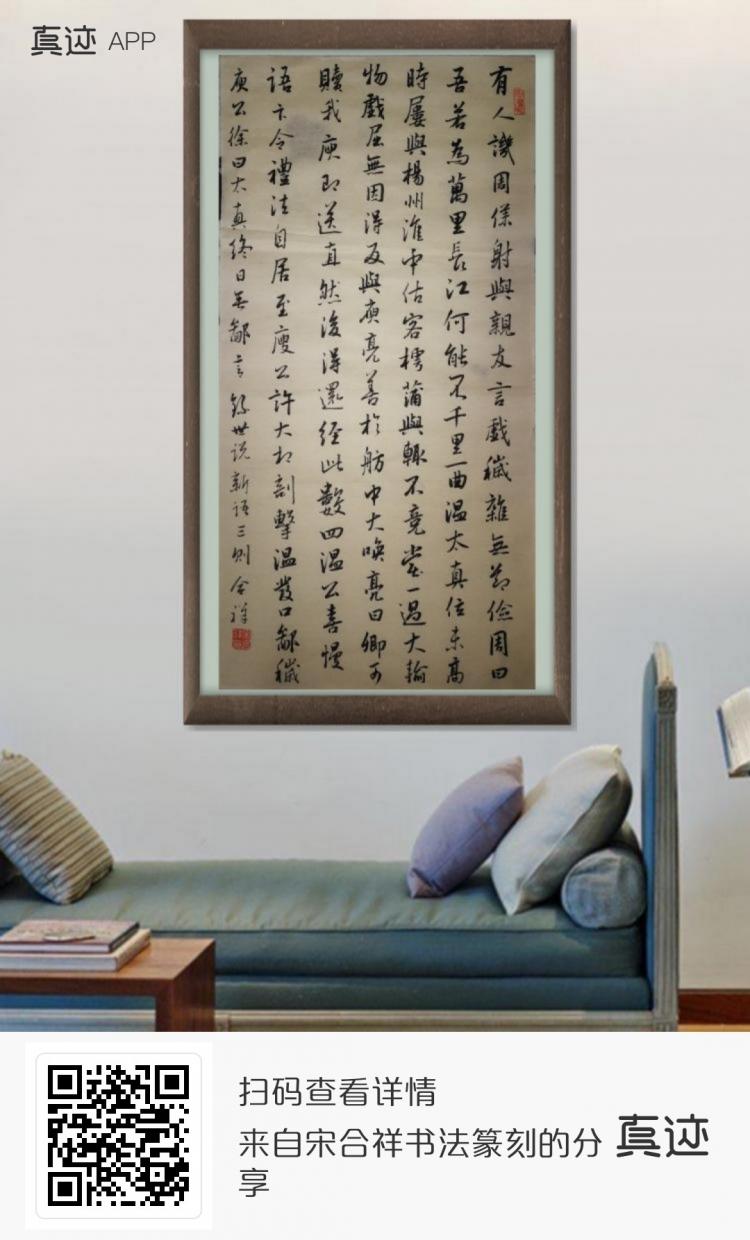 真迹 APP
有人譏周僕射與親友言戲穢雜無節儉周曰
吾若為萬里長江何能不千里一曲溫太真位未高
時屢與楊州淮中估客樗蒲與輒不競嘗一過大輸
物戲屈無因得反與庾亮善於舫中大喚亮曰卿可
贖我庾即送直然後得還經此數四溫公喜慢
語卞令禮法自居至庾公許大相剖擊溫發口鄙穢
庾公徐曰太真終日無鄙言 錄世说新语三则合祥
扫码查看详情
来自宋合祥书法篆刻的分
享
真迹